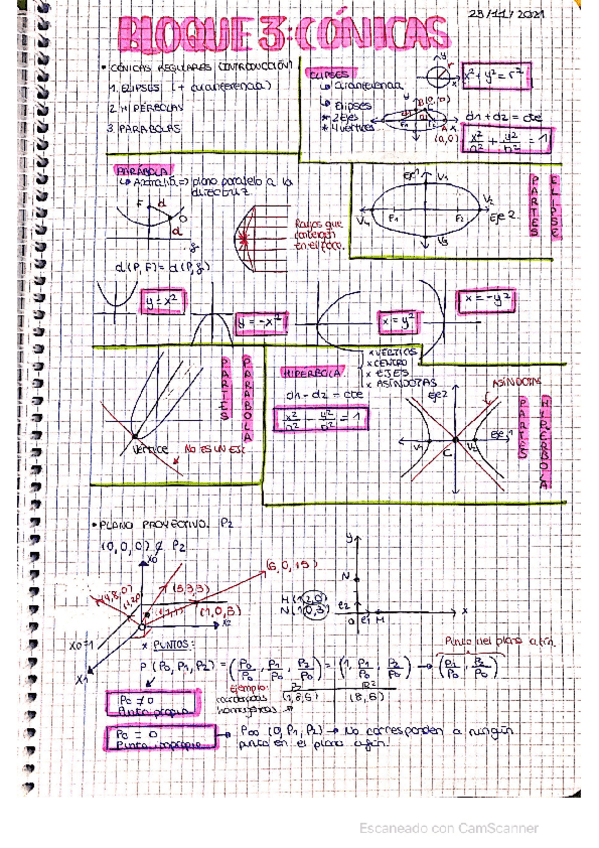 23/11/2021
BLOQUE 3: CÓNICAS
• CÓNICAS REGULARES (INTRODUCCIÓN)
1. ELIPSES (+ circunferencia)
2. HIPÉRBOLAS
3. PARÁBOLAS
ELIPSES
↳ circunferencia
x² + y² = r²
↳ Elipses
* 2 Ejes
* 4 vértices
d1 + d2 = cte
(a,0)
x²/a² + y²/b² = 1
PARÁBOLA
plano paralelo a la
directriz
F d
d
Rayos que
convergen
en el foco.
d(P,F) = d(P,g)
Eje 1 V1
V2
F1 F2 Eje 2
V4
V3
PARTES ELIPSE
y = x²
y = -x²
x = y²
x = -y²
PARTES PARÁBOLA
Vértice
NO ES UN EJE
HIPÉRBOLA
x VÉRTICES
x CENTRO
x EJES
x ASÍNTOTAS
d1 - d2 = cte
x²/a² - y²/b² = 1
ASÍNTOTAS
Eje 2
Eje 1
V1 C V2
PARTES HIPÉRBOLA
• PLANO PROYECTIVO. P2
(0,0,0) ∉ P2
X0
(5,3,3)
(6,0,15)
(1,0,5)
X0=1
X1
X2
y
N
M (1,2,0)
N (1,0,3)
e2
O e1 M x
x PUNTOS:
P (P0, P1, P2) = (P0/P0, P1/P0, P2/P0) = (1, P1/P0, P2/P0) → (P1/P0, P2/P0)
Punto del plano afín.
Ejemplo:
P2 R²
coordenadas
homogéneas
(1,8,6) (8,6)
P0 ≠ 0
Punto propio
P0 = 0
Punto impropio
→ P∞ (0, P1, P2) → No corresponden a ningún
punto en el plano afín.
Escaneado con CamScanner